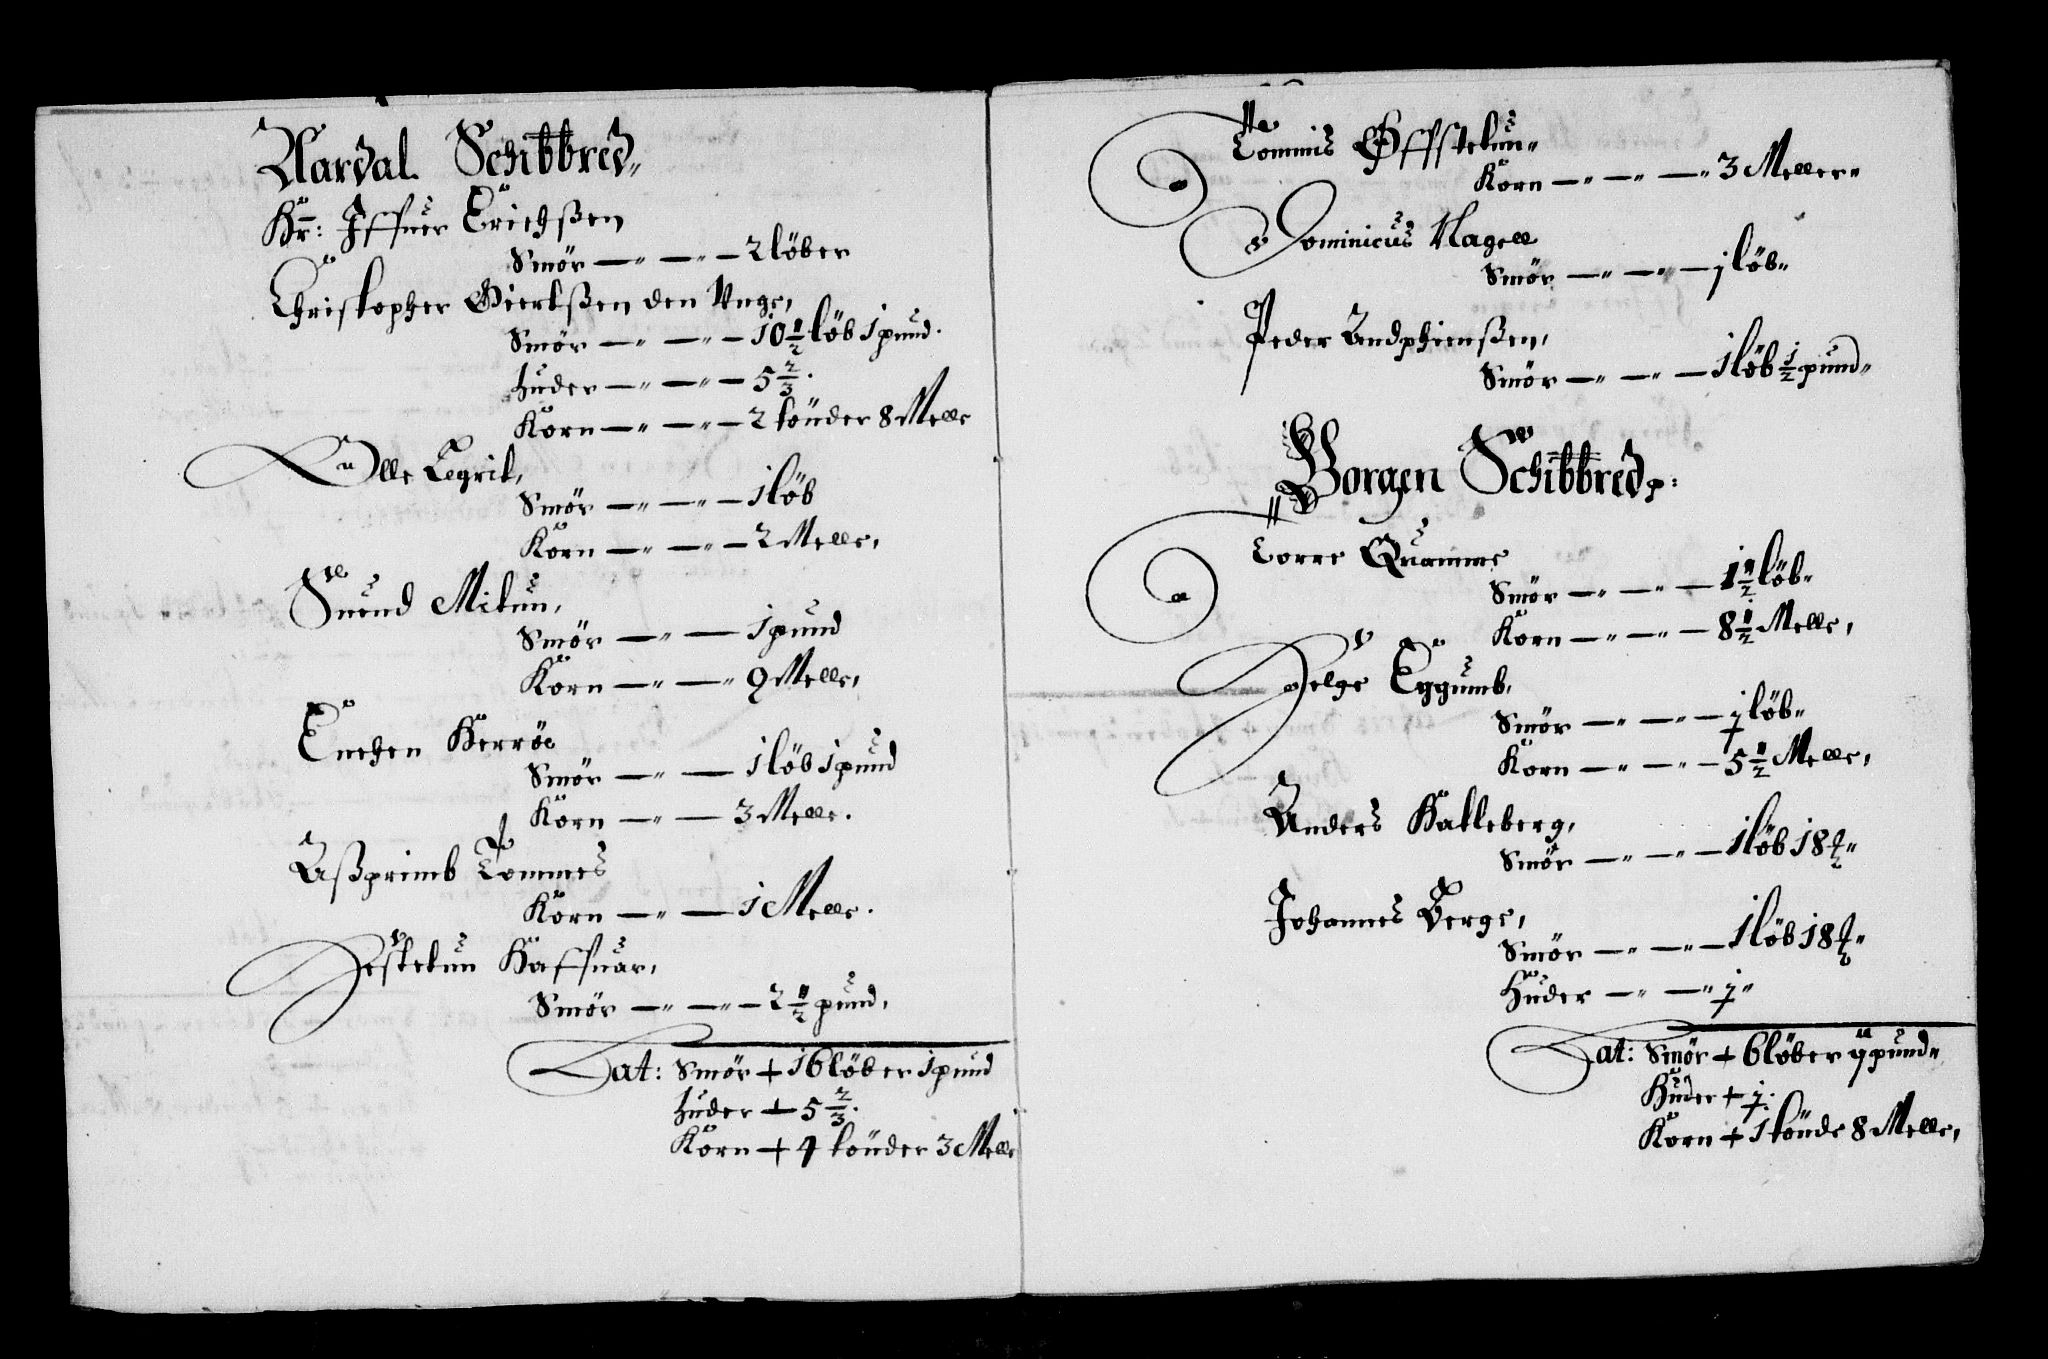 Aardal Schibbred
Hr: Iffuer Erichßen
Smör — — 2 löber
Christopher Giertßen den Unge,
Smör — — 10 1/2 löb 1 pund.
Huder — — 5 2/3.
Korn — — 2 tönder 8 Melle
Olle Legrit,
Smör — — 1 löb
Korn — — 2 Melle,
Suend Mitun,
Smör — — 1 pund
Korn — — 9 Melle,
Enchen
Smör — — 1 löb 1 pund
Korn — — 3 Melle.
Aßprimb Tommes
Korn — — 1 Melle.
Smör — — 2 1/2 pund,
Lat: Smör + 16 löber 1 pund
Huder + 5 2/3.
Korn + 4 tönder 3 Melle
Tommis Offstetun
Korn — — — 3 Meller
Dominicus Nagell
Smör — — — j löb
Peder
Smör — — — 1 löb 1/2 pund
Borgen Schibbred p:
Torre Quamme
Smör — — — 1 1/2 löb
Korn — — — 8 1/2 Melle,
Helge Eggumb,
Smör — — — j löb
Korn — — — 5 1/2 Melle,
Anders Kalleberg,
Smör — — — 1 löb 18 ℔
Johannes Berge,
Smör — — — 1 löb 18 ℔
Huder — — j
Lat: Smör + 6 löber ij pund
Huder + j.
Korn + 1 tönde 8 Melle,